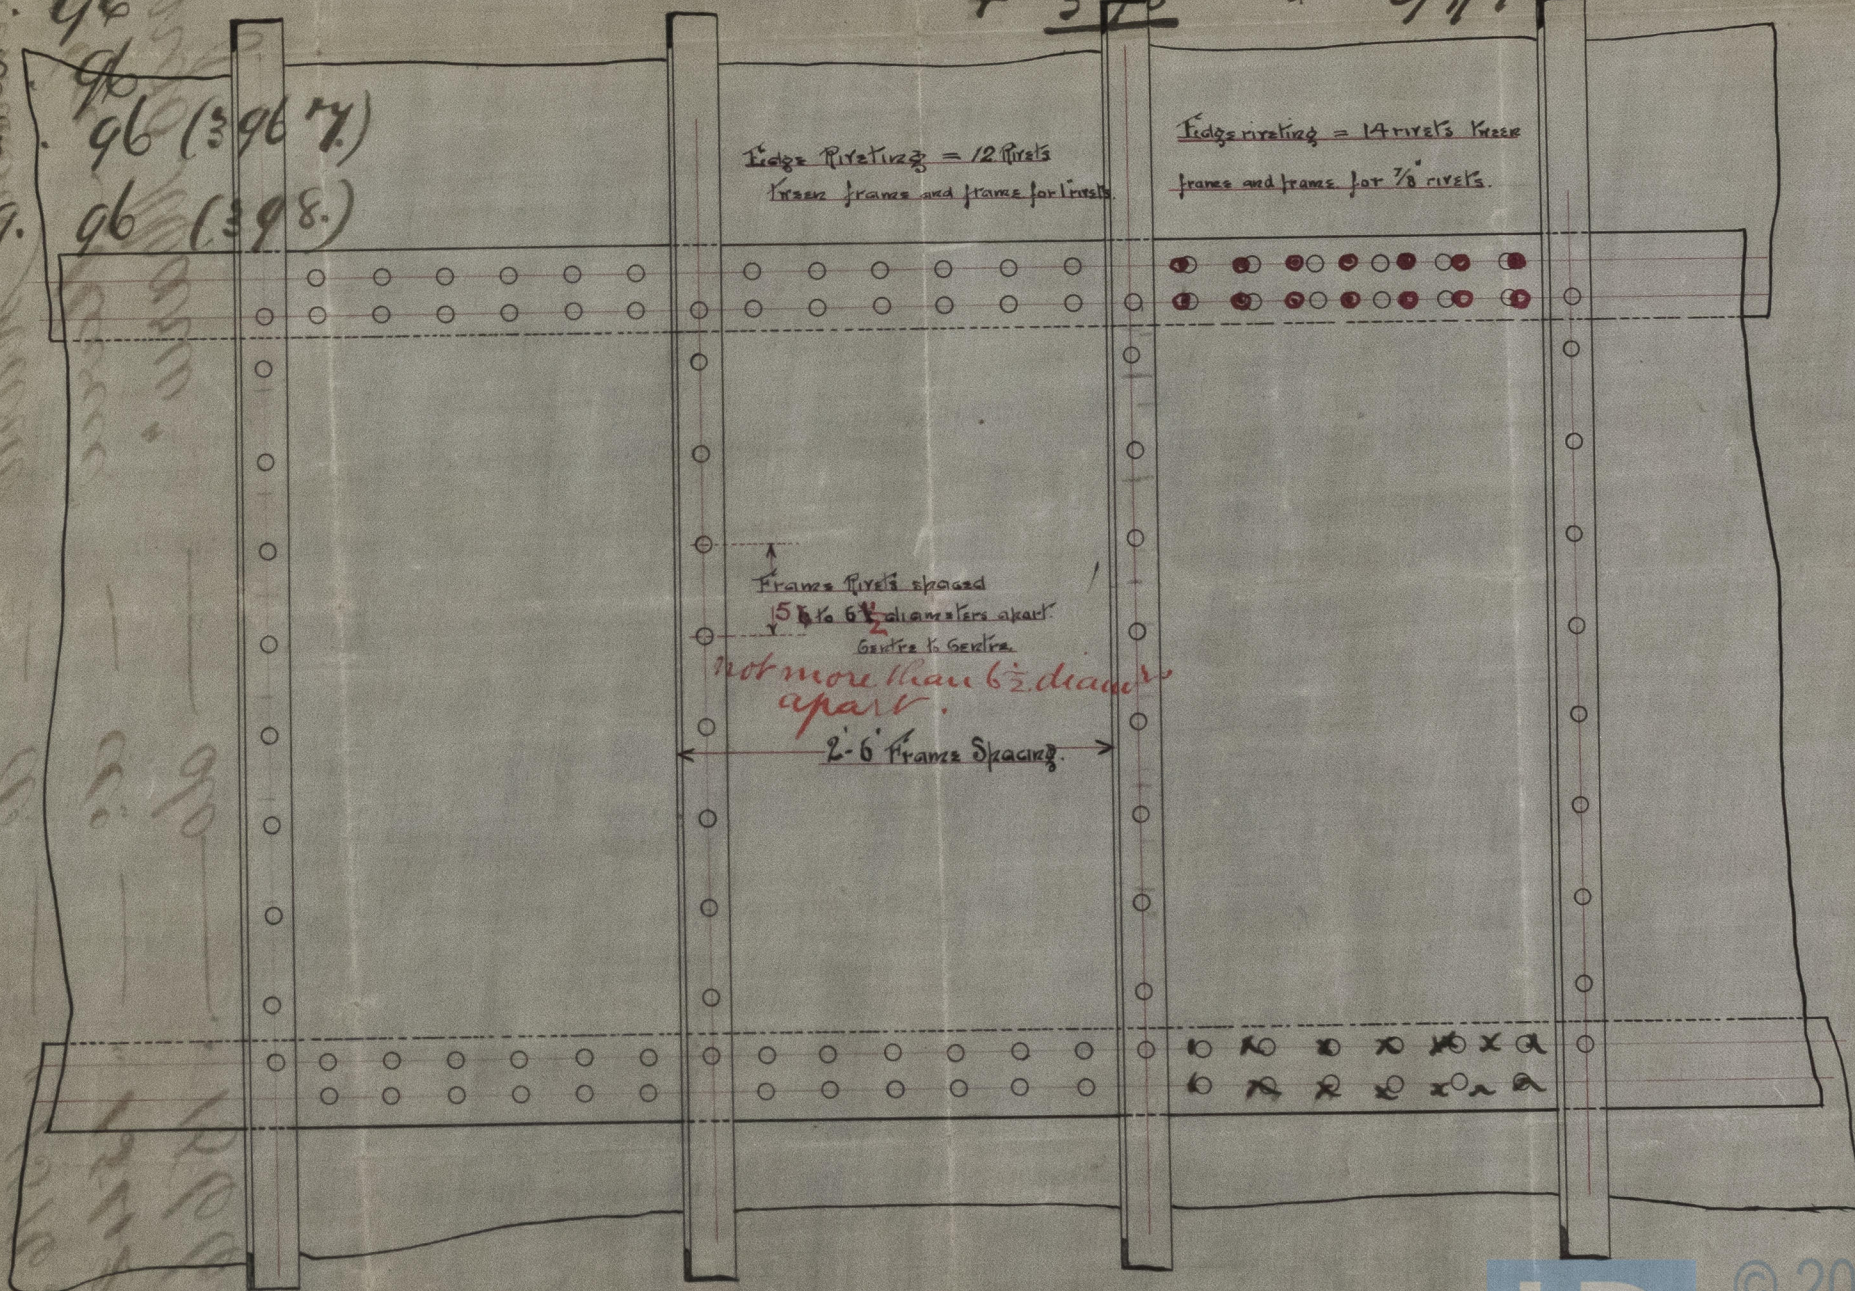 96
96
96 (3967.)
9. 96 (398.)
Edge Riveting = 12 Rivets
tween frame and frame for 1" rivets
Edge riveting = 14 rivets tween
frame and frame for 7/8" rivets.
Frame Rivets spaced
5 to 6 1/2 diameters apart.
Centre to Centre
not more than 6 1/2 diamrs
apart.
2'-6" Frame Spacing.
© 20